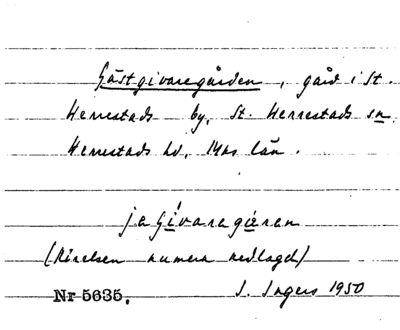 Gästgivaregården, gård i St.
Herrestads by, St. Herrestads sn
Herrestads hd, Mhs län.
(Rörelsen numera nedlagd)
Nr 5635. I. Ingers 1950